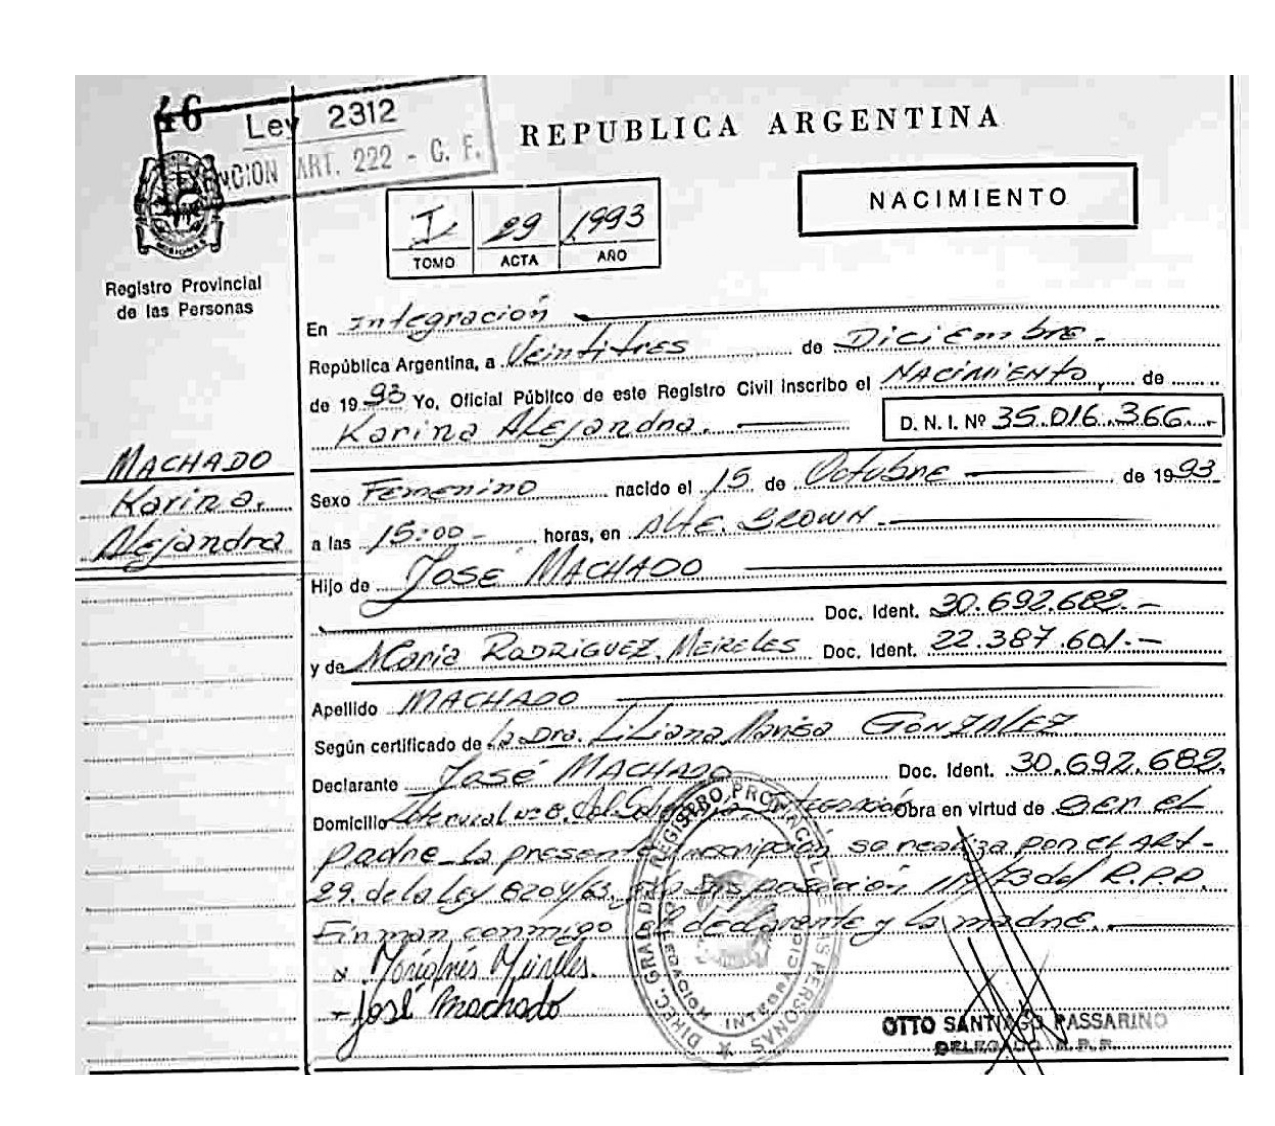 46
Ley 2312
ART. 222 - C. F.
REPUBLICA ARGENTINA
NACIMIENTO
I 29 1993
TOMO ACTA AÑO
MISIONES
Registro Provincial
de las Personas
MACHADO
Karina.
Alejandra
En Integración
República Argentina, a Veintitres de Diciembre.
de 1993 Yo, Oficial Público de este Registro Civil inscribo el Nacimiento, de
Karina Alejandra.
D. N. I. Nº 35.016.366.-
Sexo Femenino nacido el 15 de Octubre de 1993
a las 15:00- horas, en Alte. Brown.
Hijo de José MACHADO
Doc. Ident. 30.692.682.-
y de Maria RODRIGUEZ. MEIRELES Doc. Ident. 22.387.601.-
Apellido MACHADO
Según certificado de La Dra. Liliana Marisa GONZALEZ
Declarante José MACHADO Doc. Ident. 30.692.682.
Domicilio Lote rural nº 8. Col. Integración Obra en virtud de Ser el
padre_La presente inscripción se realiza por el ART-
29. de la Ley 8204/63. y la Disposición 119/73 del R.P.P.
Firman conmigo el declarante y la madre.
Meireles.
José Machado
DIREC. GRAL DEL REGISTRO PROVINCIAL DE LAS PERSONAS
DELEGACION INTEGRACION
OTTO SANTIAGO PASSARINO
DELEGADO R.P.P.